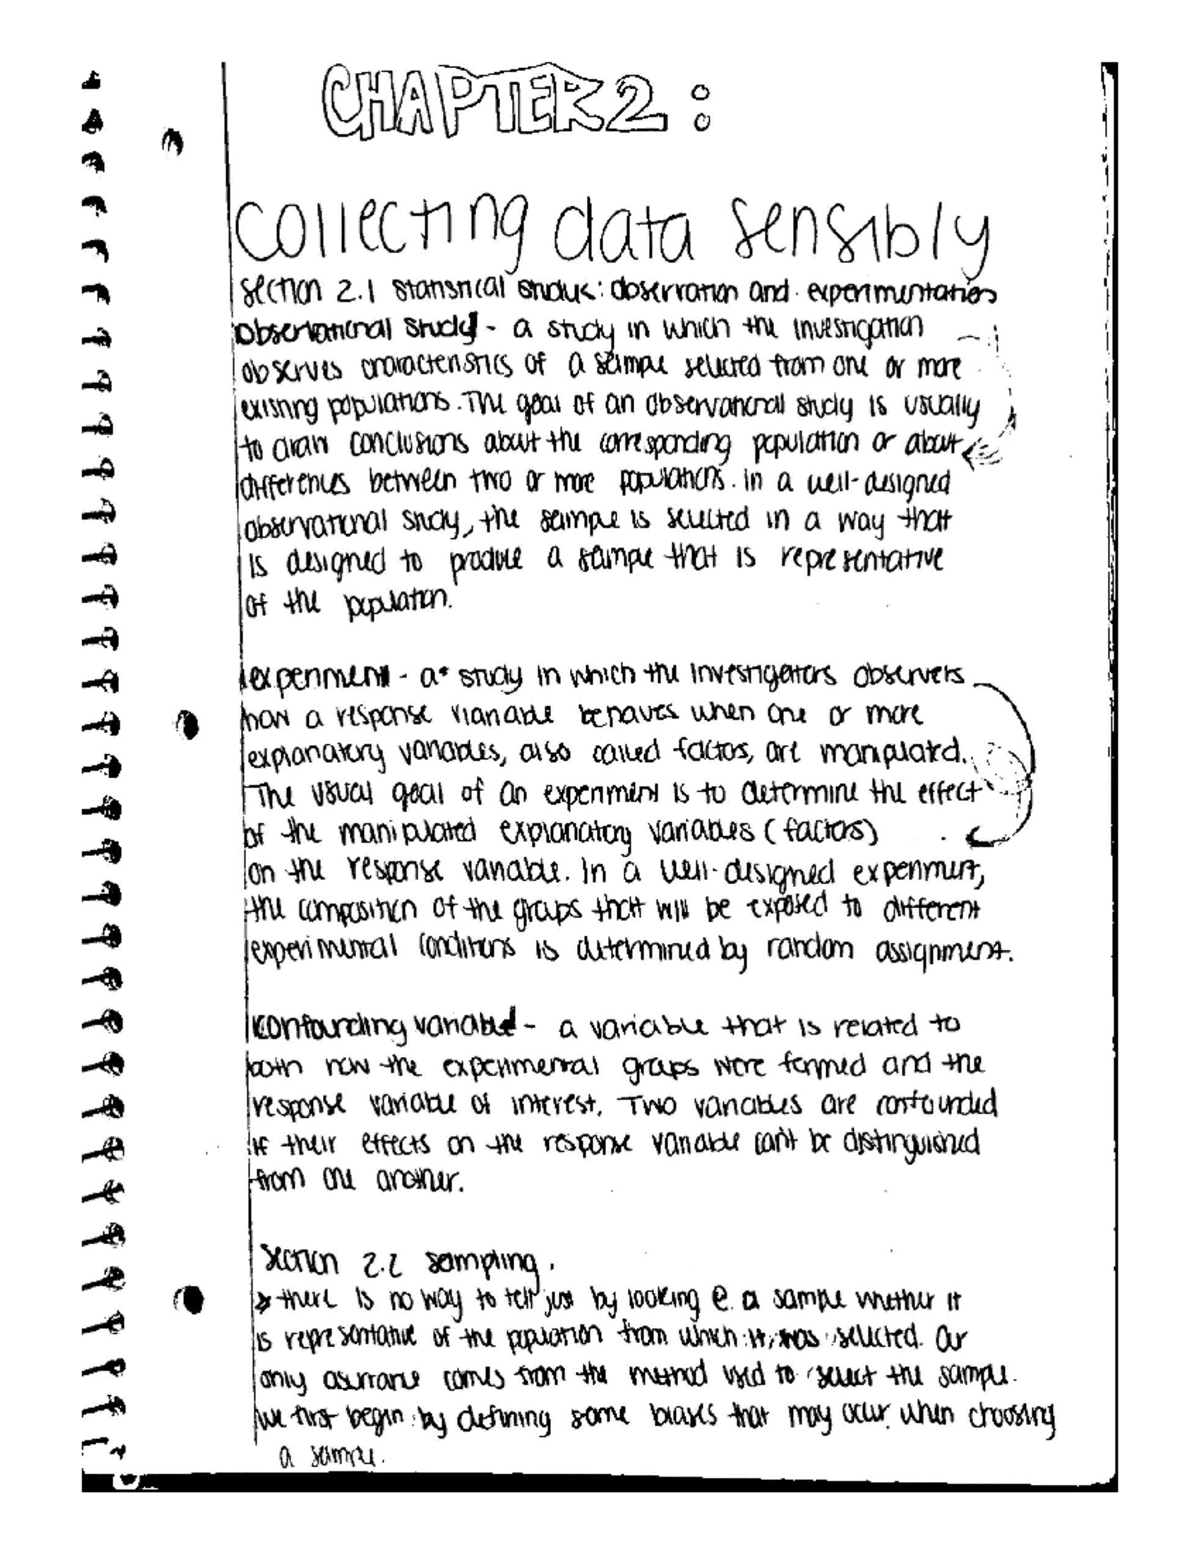 CHAPTER 2:
collecting data sensibly
Section 2.1 Statistical Studys: observation and experimentation
Observational Study - a study in which the investigation
observes characteristics of a sample selected from one or more
existing populations. The goal of an observational study is usually
to draw conclusions about the corresponding population or about
differences between two or more populations. in a well-designed
observational study, the sample is selected in a way that
is designed to produce a sample that is representative
of the population.
experiment - a study in which the investigators observers
how a response vianable behaves when one or more
explanatory variables, also called factos, are manipulated.
The usual goal of an experiment is to determine the effect
of the manipulated explanatory variables (factors)
on the response variable. In a well-designed experiment,
the composition of the groups that will be exposed to different
experimental conditions is determined by random assignment.
Confounding variable - a variable that is related to
both how the experimental groups were formed and the
response variable of interest. Two variables are confounded
if their effects on the response variable can't be distinguished
from one another.
Section 2.2 sampling.
there is no way to tell just by looking @ a sample whether it
is representative of the population from which it was selected. Our
only assurance comes from the method used to select the sample.
We first begin by defining some biases that may occur when choosing
a sample.